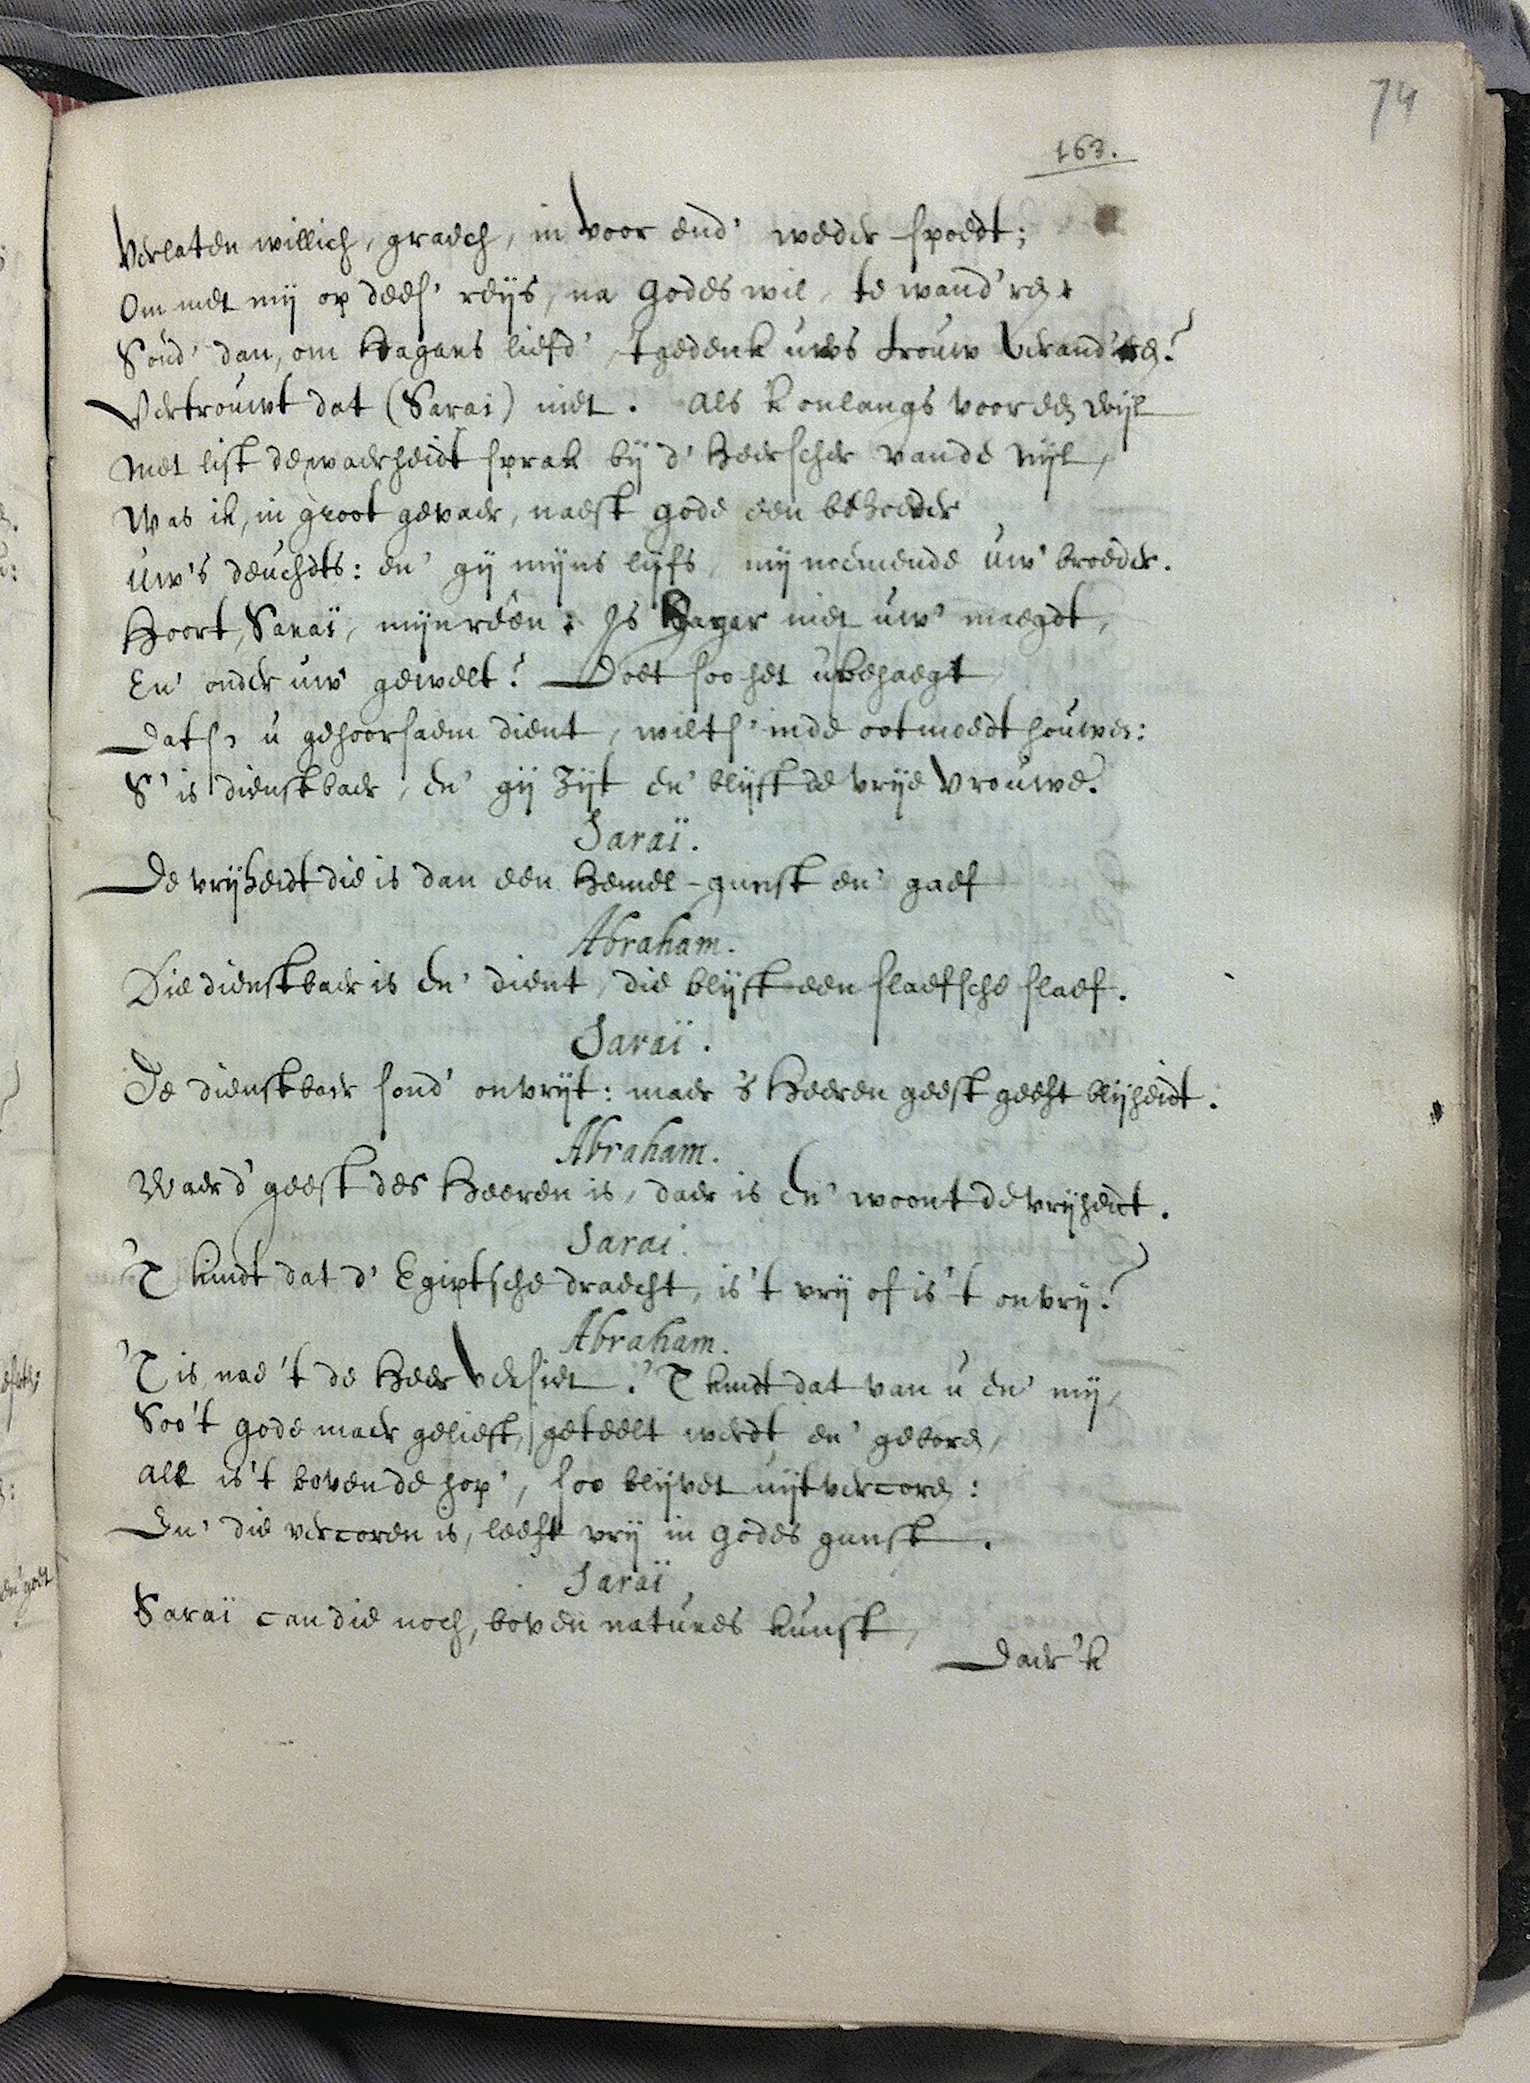 74
163.
Verlaten willich, graech, in voor end' weder-spoedt;
Om met mij op dees' reijs, na Godes wil, te wand'ren
Soud' dan, om Hagars liefd' tgedenk uwes trouw verand'ren?
Vertrouwt dat (Sarai) niet. Als 'k onlangs voor een wijl
Met list de waerheidt sprak bij d' Heerscher vande Nijl,
Was ik, in groot gevaer, naest Gode een behoeder
Uw's deuchdts: en' gij mijns lijfs, mij noemende uw' broeder.
Hoort, Saraï, mijn reên: Is Hagar niet uw' maegdt,
En' onder uw' gewelt? Doet soo het u behaegt
Dats' u gehoorsaem dient, wilts' inde ootmoedt houwen:
S' is dienstbaer, en' gij zijt en' blijft de vrije vrouwe.
Saraï.
De vrijheidt die is dan een Hemel-gunst en' gaef
Abraham.
Die dienstbaer is en' dient, die blijft een slaefsche slaef.
Saraï.
De dienstbaer sond' onvrijt: maer 's Heeren geest geeft blijheidt.
Abraham.
Waer d' geest des Heeren is, daer is en' woont de vrijheidt.
Sarai.
'T kindt dat d' Egiptsche draecht, is 't vrij of is 't onvrij?
Abraham.
'T is nae 't de Heer versiet. 'T kindt dat van u en' mij,
Soo 't Gode maer gelieft, geteelt werdt en' geboren,
Als is 't boven de hop', soo blijvet uijtvercoren:
En' die vercoren is, leeft vrij in Godes gunst.
Saraï
Saraï can die noch, boven natures kunst,
Daer 'k